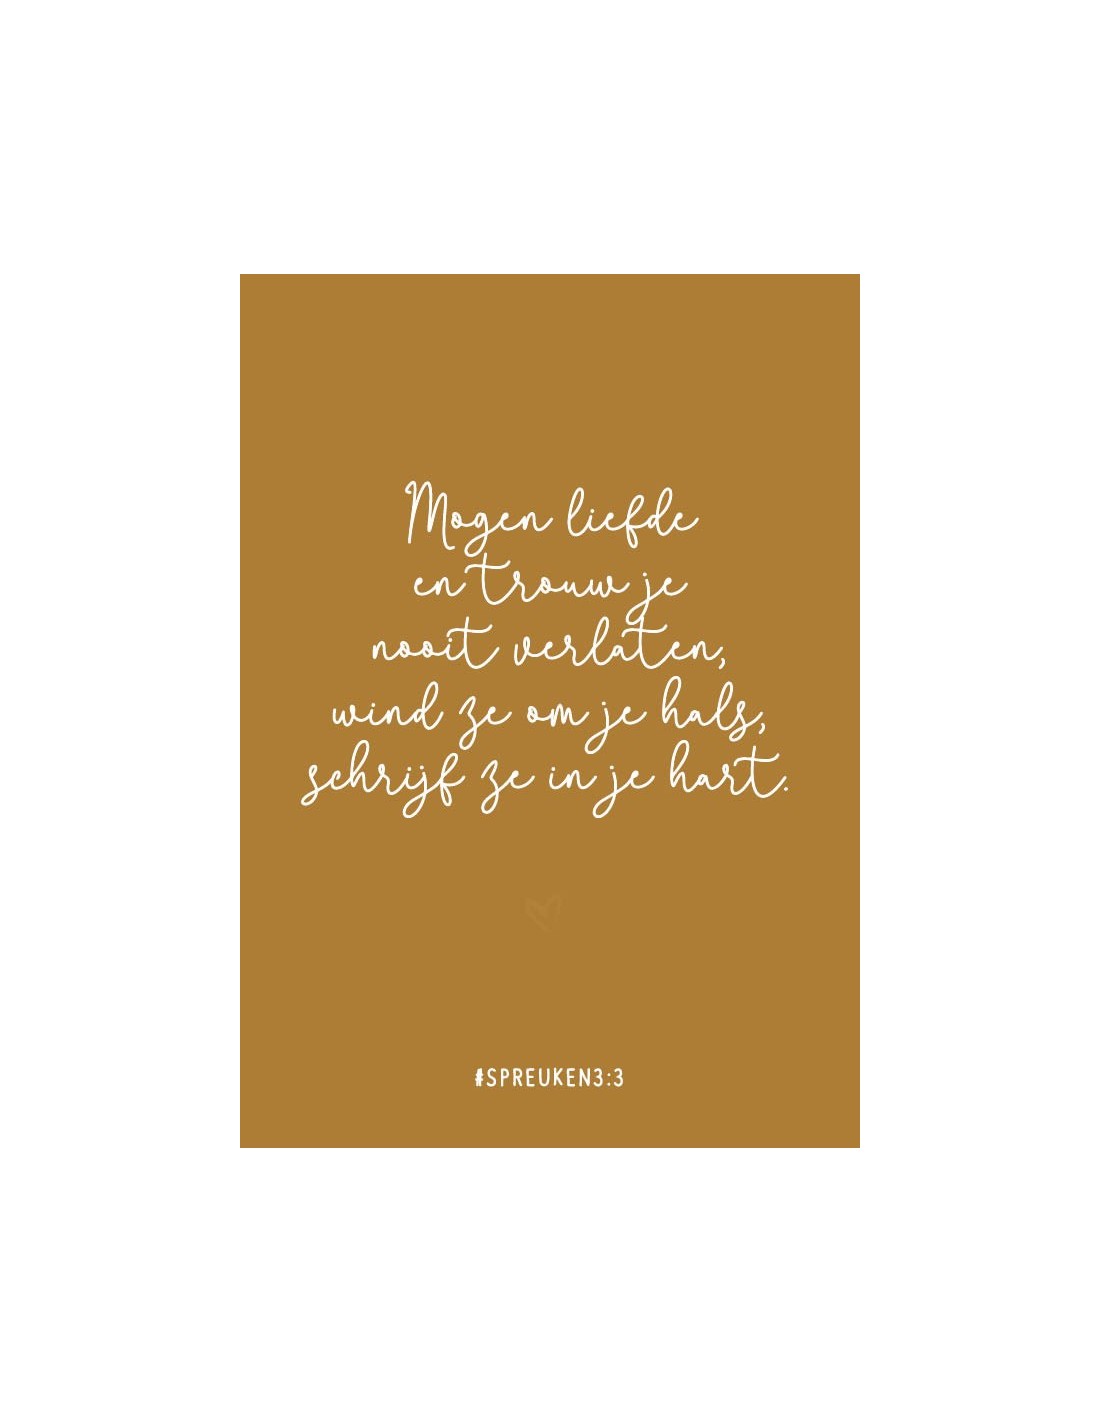 Mogen liefde
en trouw je
nooit verlaten,
wind ze om je hals,
schrijf ze in je hart.
#SPREUKEN3:3